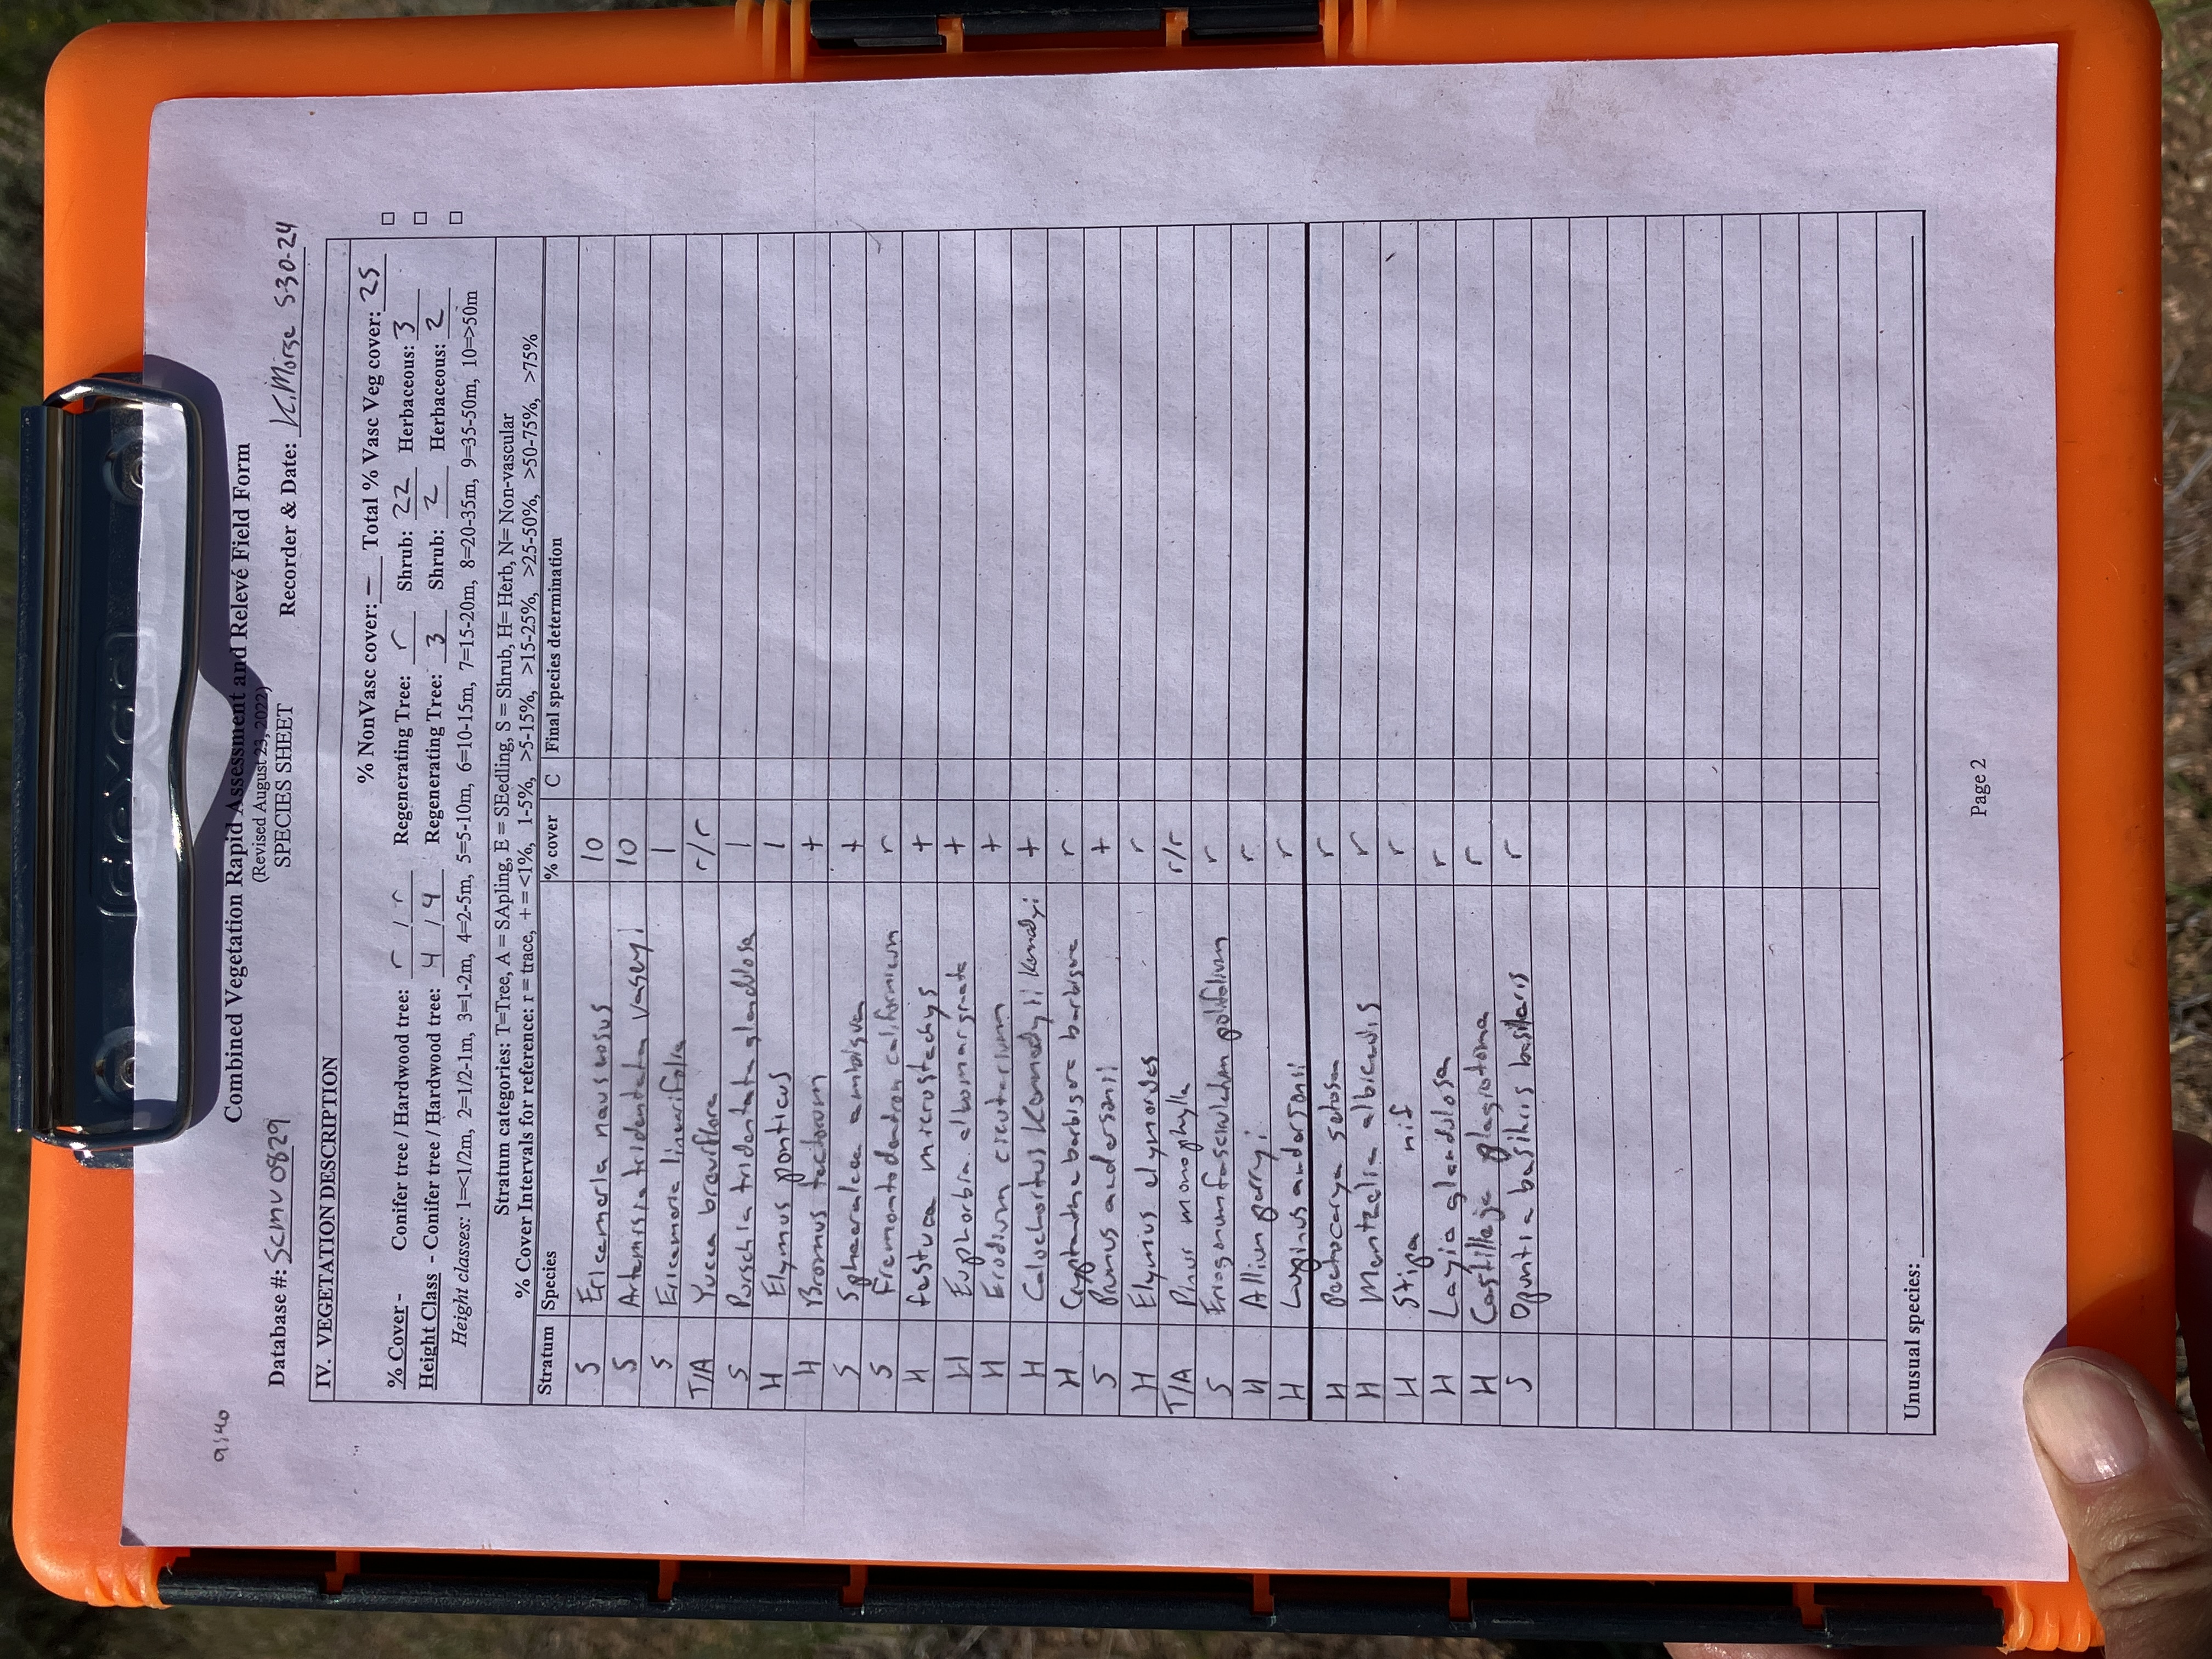 9140
Combined Vegetation Rapid Assessment and Relevé Field Form
(Revised August 23, 2022)
SPECIES SHEET
Database #: SCMV0829 Recorder & Date: K. Morse 5-30-24
IV. VEGETATION DESCRIPTION
% NonVasc cover: – Total % Vasc Veg cover: 25
% Cover - Conifer tree / Hardwood tree: r / r Regenerating Tree: r Shrub: 22 Herbaceous: 3
Height Class - Conifer tree / Hardwood tree: 4 / 4 Regenerating Tree: 3 Shrub: 2 Herbaceous: 2
Height classes: 1=<1/2m, 2=1/2-1m, 3=1-2m, 4=2-5m, 5=5-10m, 6=10-15m, 7=15-20m, 8=20-35m, 9=35-50m, 10=>50m
Stratum categories: T=Tree, A = SApling, E = SEedling, S = Shrub, H= Herb, N= Non-vascular
% Cover Intervals for reference: r = trace, + = <1%, 1-5%, >5-15%, >15-25%, >25-50%, >50-75%, >75%
Stratum Species % cover C Final species determination
S Ericameria nauseosus 10
S Artemisia tridentata vaseyi 10
S Ericameria linearifolia 1
T/A Yucca breviflora r/r
S Purschia tridentata glandulosa 1
H Elymus ponticus 1
H Bromus tectorum +
S Sphaeralcea ambigua +
S Fremontodendron californicum r
H festuca microstachys +
H Euphorbia albomarginata +
H Erodium cicutarium +
H Calochortus Kennedyi Kenndyi +
H Cryptantha barbigera barbigera r
S Prunus andersonii +
H Elymus elymoides r
T/A Pinus monophylla r/r
S Eriogonum fasciculatum polifolium r
H Allium parryi r
H Lupinus andersonii r
H Pectocarya setosa r
H Mentzelia albicaulis r
H Stipa nif r
H Layia glandulosa r
H Castilleja plagiotoma r
S Opuntia basilaris basilaris r
Unusual species:
Page 2